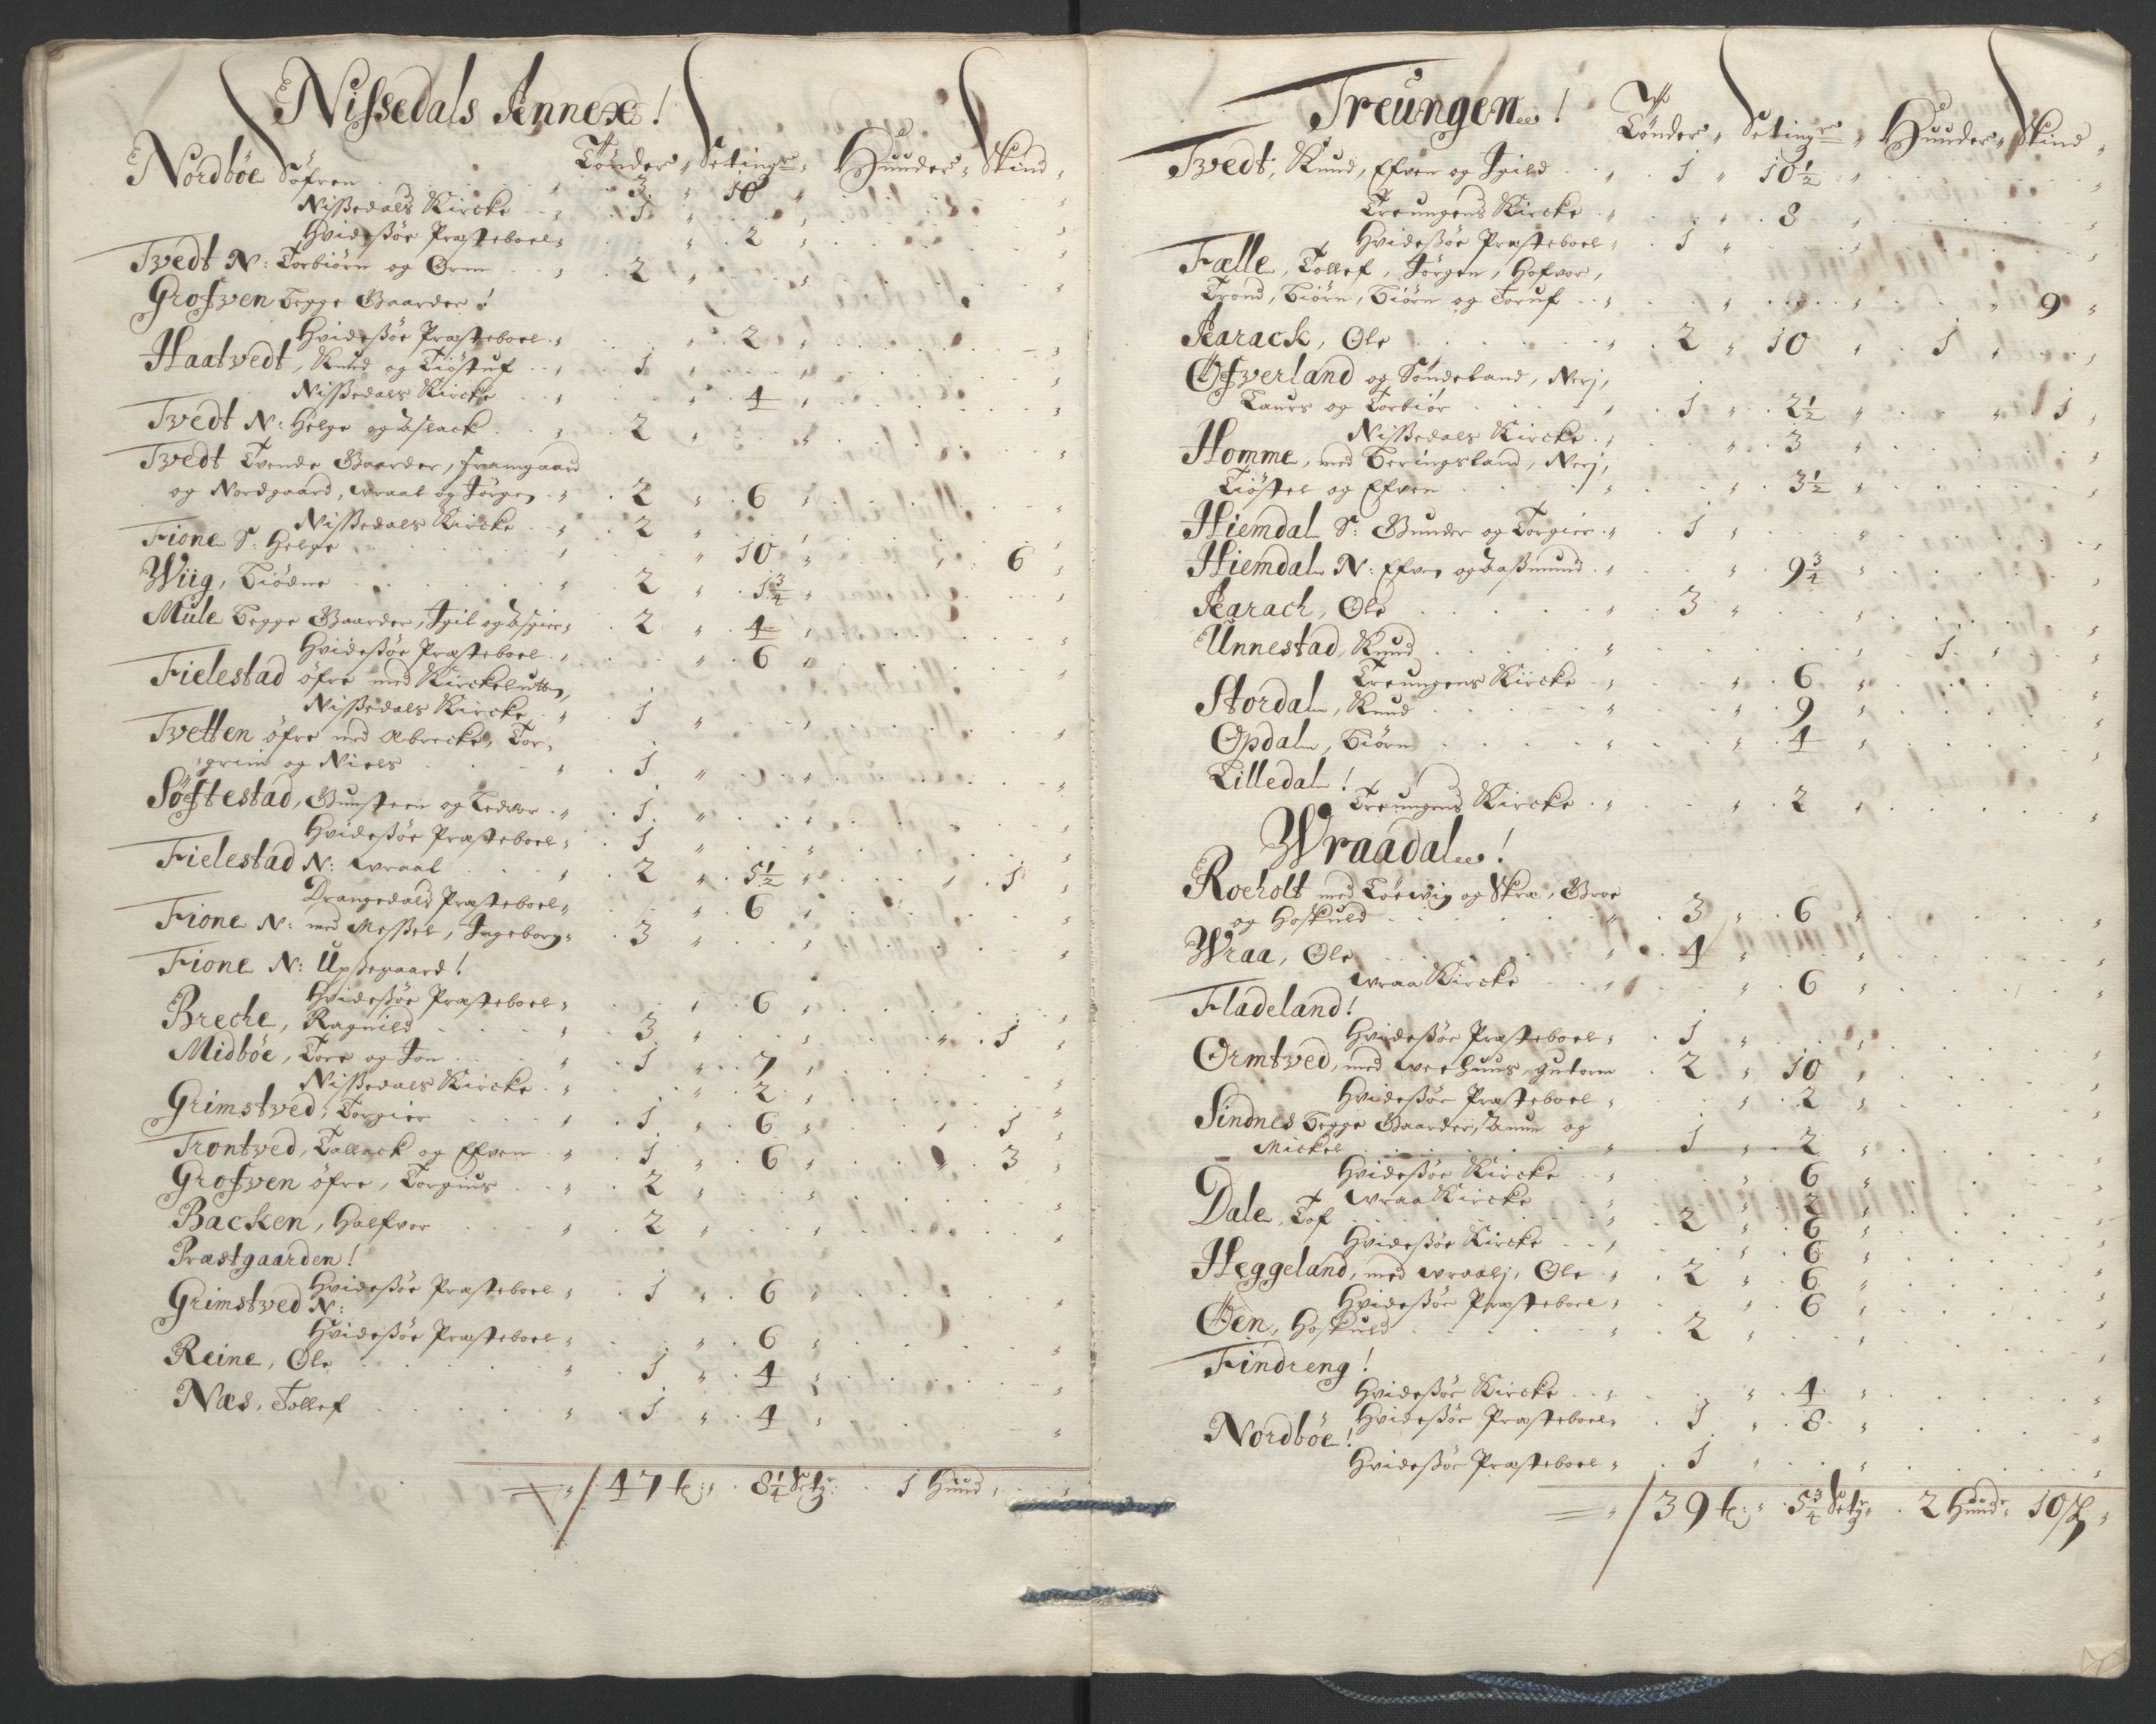 Nissedals Annex!
Tønder Setingr Huuder Skind
Nordbøe Søfren 3 10
Nissedals Kircke 1
Hvidessøe Præsteboel 2
Tvedt N: Torbiørn og Orm 2
Grofven begge Gaarder!
Hvidessøe Præsteboel 2
Haatvedt, Knud og Tiøstuf 1
Nissedals Kircke 4
Tvedt N: Helge og Aslack 2
Tvedt Tvende Gaarder, framgaard
og Nordgaard, Wraal og Jørgen 2 6
Nissedals Kircke 2
Fione S: Helge 10 6
Wiig, Tiødne 2 1 3/4
Mule begge Gaarder, Igil og Asgier 2 4
Hvidessøe Præsteboel 6
Fielestad øfre med Kirckelutten,
Nissedals Kircke 1
Tvetten øfre med Abrecke, Tor,
grim og Niels 1
Søftestad, Gunsteen og Ledvor 1
Hvidessøe Præsteboel 1
Fielestad N: Wraal 2 5 1/2 1
Drangedals Præsteboel 6
Fione N: med Messel, Ingeborg 3
Fione N: Upsegaard!
Hvidessøe Præsteboel 6
Breche, Ragnild 3 1
Midbøe, Tore og Jon 1 7
Nissedals Kircke 2
Grimstved, Torgier 1 6 1
Trontved, Tallack og Efven 1 6 3
Grofven øfre, Torgius 2
Backen, Halfvor 2
Præstgaarden!
Hvidessøe Præsteboel 1 6
Grimstved N:
Hvidessøe Præsteboel 6
Reine, Ole 1 4
Næs, Tollef 1 4
47 t: 8 1/4 Setgr: 1 Huud
Treungen!
Tønder Setingr Huuder Skind
Tvedt, Knud, Efven og Igild 1 10 1/2
Treungens Kircke 8
Hvidessøe Præsteboel 1
Fælle, Tollef, Jørgen, Hofvor,
Trond, Biørn, Biørn og Toruf 9
Aarack, Ole 2 10 1
Øfverland og Søndeland, Nerj,
Taurs og Torbiør 1 2 1/2 1
Nissedals Kircke 3
Homme, med Beringsland, Nerj,
Tiøstel og Efven 3 1/2
Hiemdal S: Gunder og Torgier 1
Hiemdal N: Efven og Aassmund 9 3/4
Aarach, Ole 3
Unnestad, Knud 1
Treungens Kircke 6
Stordal, Knud 9
Opdal, Biørn 4
Lilledal!
Treungens Kircke 2
Wraadal!
Roeholt med Løevig og Skræ, Groe
og Hoskuld 3 6
Wraa, Ole 4
Wraa Kircke 6
Fladeland!
Hvidessøe Præsteboel 1
Ormtved, med Veehuus, Gutorm 2 10
Hvidessøe Præsteboel 2
Sindnes begge Gaarder, Aamun og
Mickel 1 2
Hvidessøe Kircke 6
Wraa Kircke 2
Dale, Tof 2 6
Hvidessøe Kircke 6
Heggeland, med Wraalj, Ole 2 6
Hvidessøe Præsteboel 6
Øen, Hoskuld 2
Findreng!
Hvidessøe Kircke 4
Hvidessøe Præsteboel 1 8
Nordbøe!
Hvidessøe Præsteboel 1
39 t: 5 3/4 Setgr 2 Huudr 10 sk